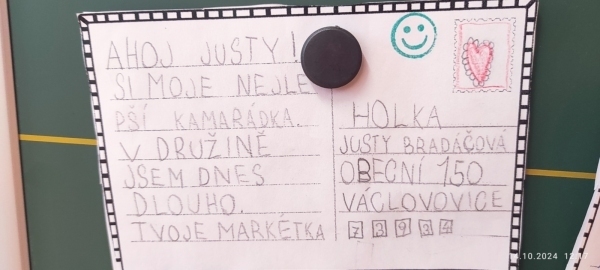 AHOJ JUSTY!
SI MOJE NEJLE
PŠÍ KAMARÁDKA.
V DRUŽINĚ
JSEM DNES
DLOUHO.
TVOJE MARKÉTKA
HOLKA
JUSTY BRADÁČOVÁ
OBECNÍ 150
VÁCLOVOVICE
7 3 9 3 4
.10.2024